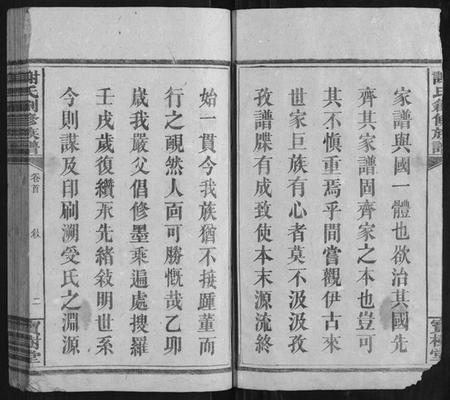 家譜與國一體也欲治其國先
齊其家譜固齊家之本也豈可
其不慎重焉乎間嘗觀伊古來
世家巨族有心者莫不汲汲孜
孜譜牒有成致使本末源流終
始一貫今我族猶不接踵董而
行之靦然人面可勝慨哉乙卯
歲我嚴父倡修墨乘遍處搜羅
壬戌歲復續承先緒敘明世系
今則謀及印刷溯受氏之淵源
謝氏創修族譜
卷首
敘
二
寶樹堂